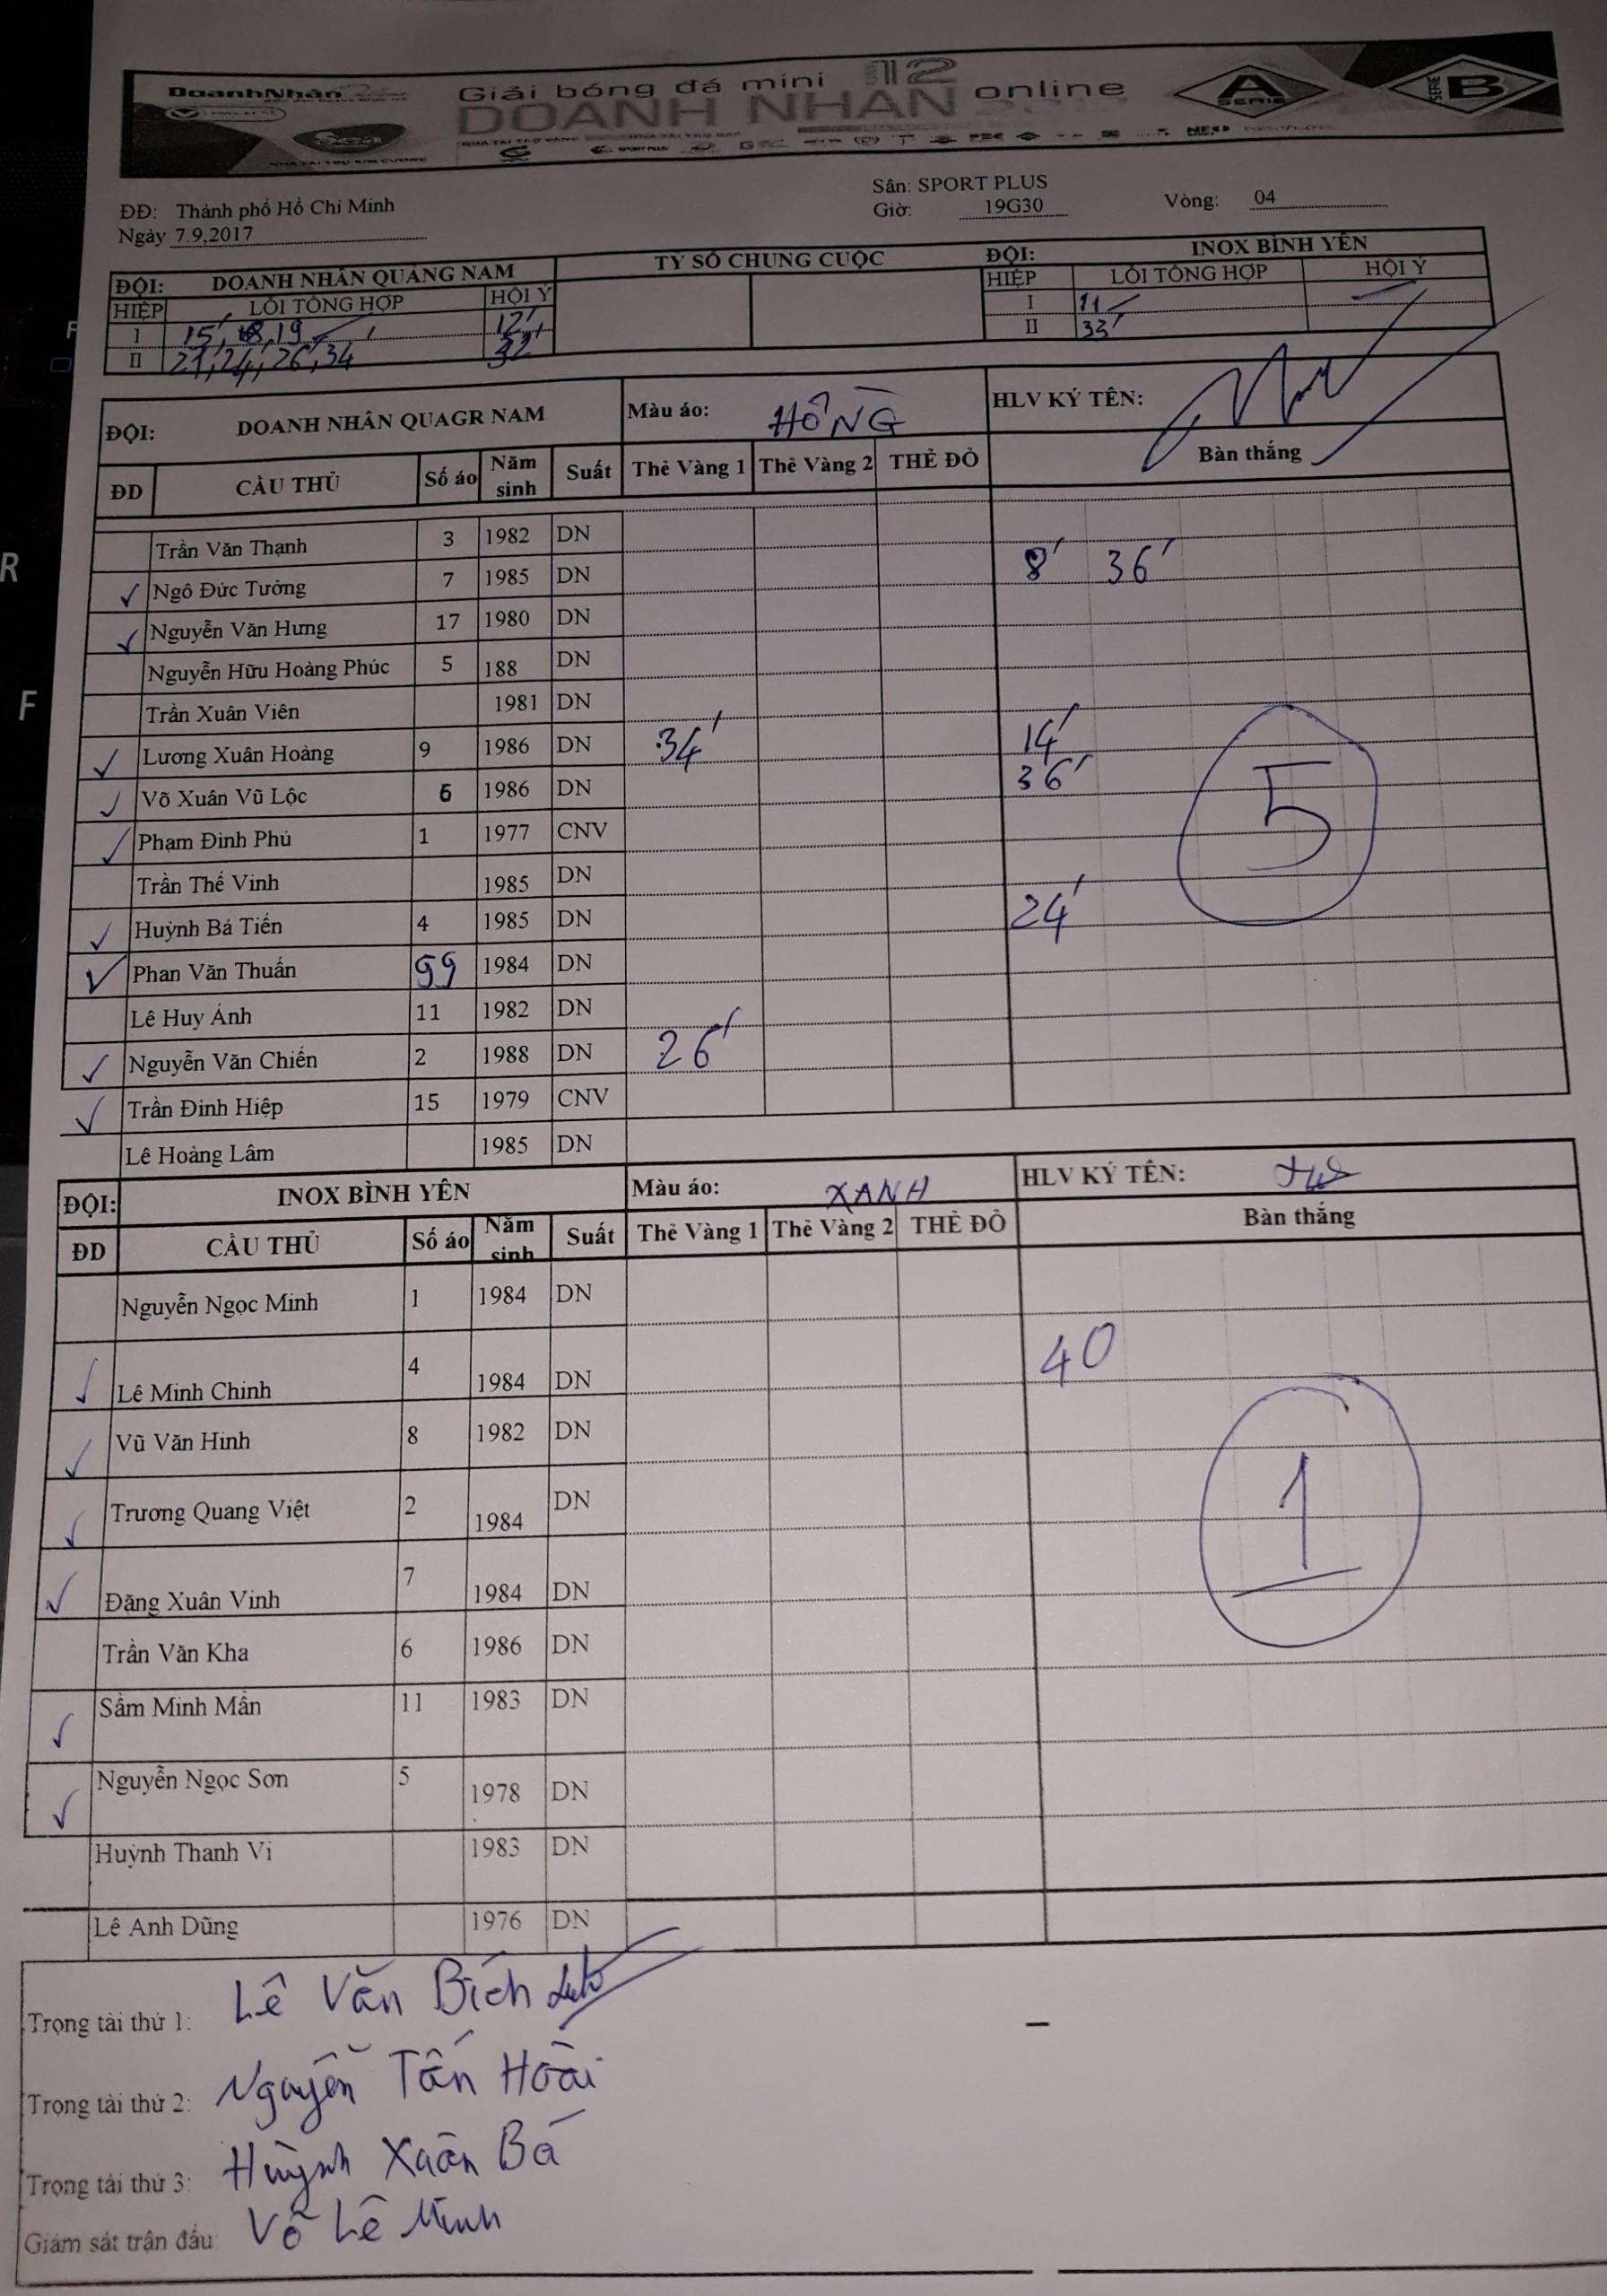 DoanhNhân
Giải bóng đá mini 12 online
DOANH NHÂN
A SERIE
SERIE B
ĐĐ: Thành phố Hồ Chí Minh
Sân: SPORT PLUS
Ngày 7.9,2017
Giờ: 19G30
Vòng: 04
ĐỘI: DOANH NHÂN QUẢNG NAM
TỶ SỐ CHUNG CUỘC
ĐỘI: INOX BÌNH YÊN
HIỆP LỖI TỔNG HỢP HỘI Ý
HIỆP LỖI TỔNG HỢP HỘI Ý
I 15', 18, 19 12'
I 11
II 21, 24, 26, 34 32'
II 33'
ĐỘI: DOANH NHÂN QUAGR NAM Màu áo: HỒNG HLV KÝ TÊN:
ĐD CẦU THỦ Số áo Năm sinh Suất Thẻ Vàng 1 Thẻ Vàng 2 THẺ ĐỎ Bàn thắng
Trần Văn Thạnh 3 1982 DN
Ngô Đức Tường 7 1985 DN 8' 36'
Nguyễn Văn Hưng 17 1980 DN
Nguyễn Hữu Hoàng Phúc 5 188 DN
Trần Xuân Viên 1981 DN
Lương Xuân Hoàng 9 1986 DN 34' 14'
Võ Xuân Vũ Lộc 6 1986 DN 36'
Phạm Đình Phú 1 1977 CNV
Trần Thế Vinh 1985 DN
Huỳnh Bá Tiến 4 1985 DN 24'
Phan Văn Thuấn 99 1984 DN
Lê Huy Ánh 11 1982 DN
Nguyễn Văn Chiến 2 1988 DN 26'
Trần Đình Hiệp 15 1979 CNV
Lê Hoàng Lâm 1985 DN
5
ĐỘI: INOX BÌNH YÊN Màu áo: XANH HLV KÝ TÊN:
ĐD CẦU THỦ Số áo Năm sinh Suất Thẻ Vàng 1 Thẻ Vàng 2 THẺ ĐỎ Bàn thắng
Nguyễn Ngọc Minh 1 1984 DN
Lê Minh Chinh 4 1984 DN 40
Vũ Văn Hinh 8 1982 DN
Trương Quang Việt 2 1984 DN
Đặng Xuân Vinh 7 1984 DN
Trần Văn Kha 6 1986 DN
Sầm Minh Mẫn 11 1983 DN
Nguyễn Ngọc Sơn 5 1978 DN
Huỳnh Thanh Vi 1983 DN
Lê Anh Dũng 1976 DN
1
Trọng tài thứ 1: Lê Văn Bích
Trọng tài thứ 2: Nguyễn Tấn Hoài
Trọng tài thứ 3: Huỳnh Xuân Bá
Giám sát trận đấu: Võ Lê Minh